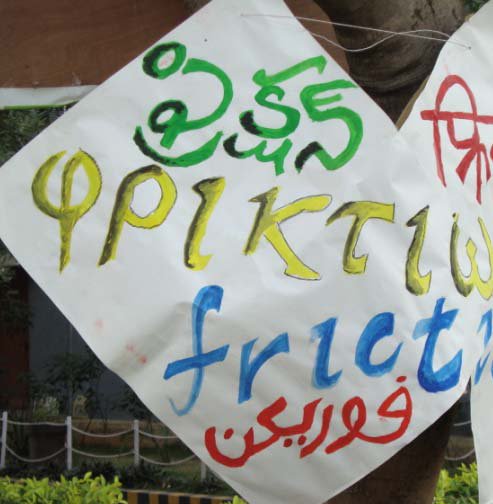 ఫ్రిక్షన్
φρικτιω
fricti
فوریکن